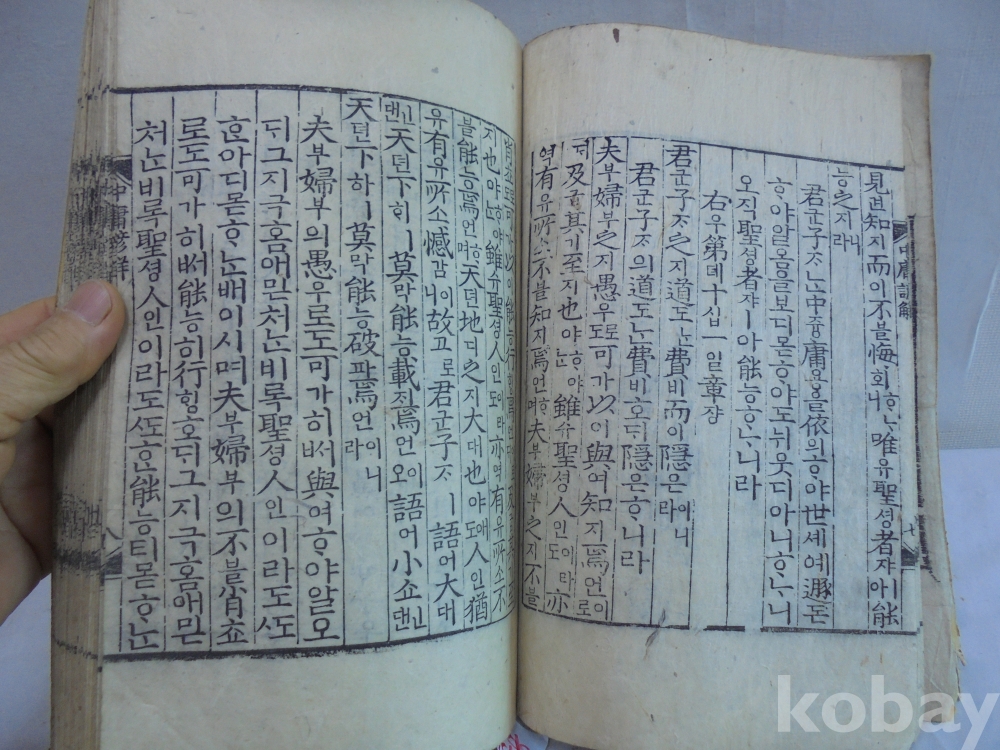 見견知지而이不블悔회ᄒᆞᄂᆞ니唯유聖셩者쟈ㅣ아能
능之지니라
君군子ᄌᆞᄂᆞᆫ中듕庸용을依의ᄒᆞ야世셰예遯돈
ᄒᆞ야알옴을보디몯ᄒᆞ야도뉘웃디아니ᄒᆞᄂᆞ니
오직聖셩者쟈ㅣ아能능ᄒᆞᄂᆞ니라
右우第뎨十십一일章쟝
君군子ᄌᆞ之지道도ᄂᆞᆫ費비而이隱은이니라
君군子ᄌᆞ의道도ᄂᆞᆫ費비호ᄃᆡ隱은ᄒᆞ니라
夫부婦부之지愚우로도可가以이與여知지焉언이로
ᄃᆡ及급其기至지也야ᄒᆞ야ᄂᆞᆫ雖슈聖셩人인이라도亦
역有유所소不블知지焉언ᄒᆞ며夫부婦부之지不블
肖쵸로도可가以이能능行ᄒᆡᆼ焉언
지也야ᄒᆞ야ᄂᆞᆫ雖슈聖셩人인이라도亦역有유所소不
블能능焉언ᄒᆞ며天텬地디之지大대也야애人인猶
유有유所소憾감이니故고로君군子ᄌᆞㅣ語어大대
ᄂᆡᆫ댄天텬下하ㅣ莫막能능載ᄌᆡ焉언이오語어小쇼ᄂᆡᆫ댄
天텬下하ㅣ莫막能능破파焉언이니라
夫부婦부의愚우로도可가히ᄡᅥ與여ᄒᆞ야알오
ᄃᆡ그지극홈애믿쳐ᄂᆞᆫ비록聖셩人인이라도ᄯᅩ
ᄒᆞᆫ아디몯ᄒᆞᄂᆞᆫ배이시며夫부婦부의不블肖쵸
로도可가히ᄡᅥ能능히行ᄒᆡᆼ호ᄃᆡ그지극홈애믿
쳐ᄂᆞᆫ비록聖셩人인이라도ᄯᅩᄒᆞᆫ能능티몯ᄒᆞᄂᆞᆫ
中庸諺解
七
八
kobay